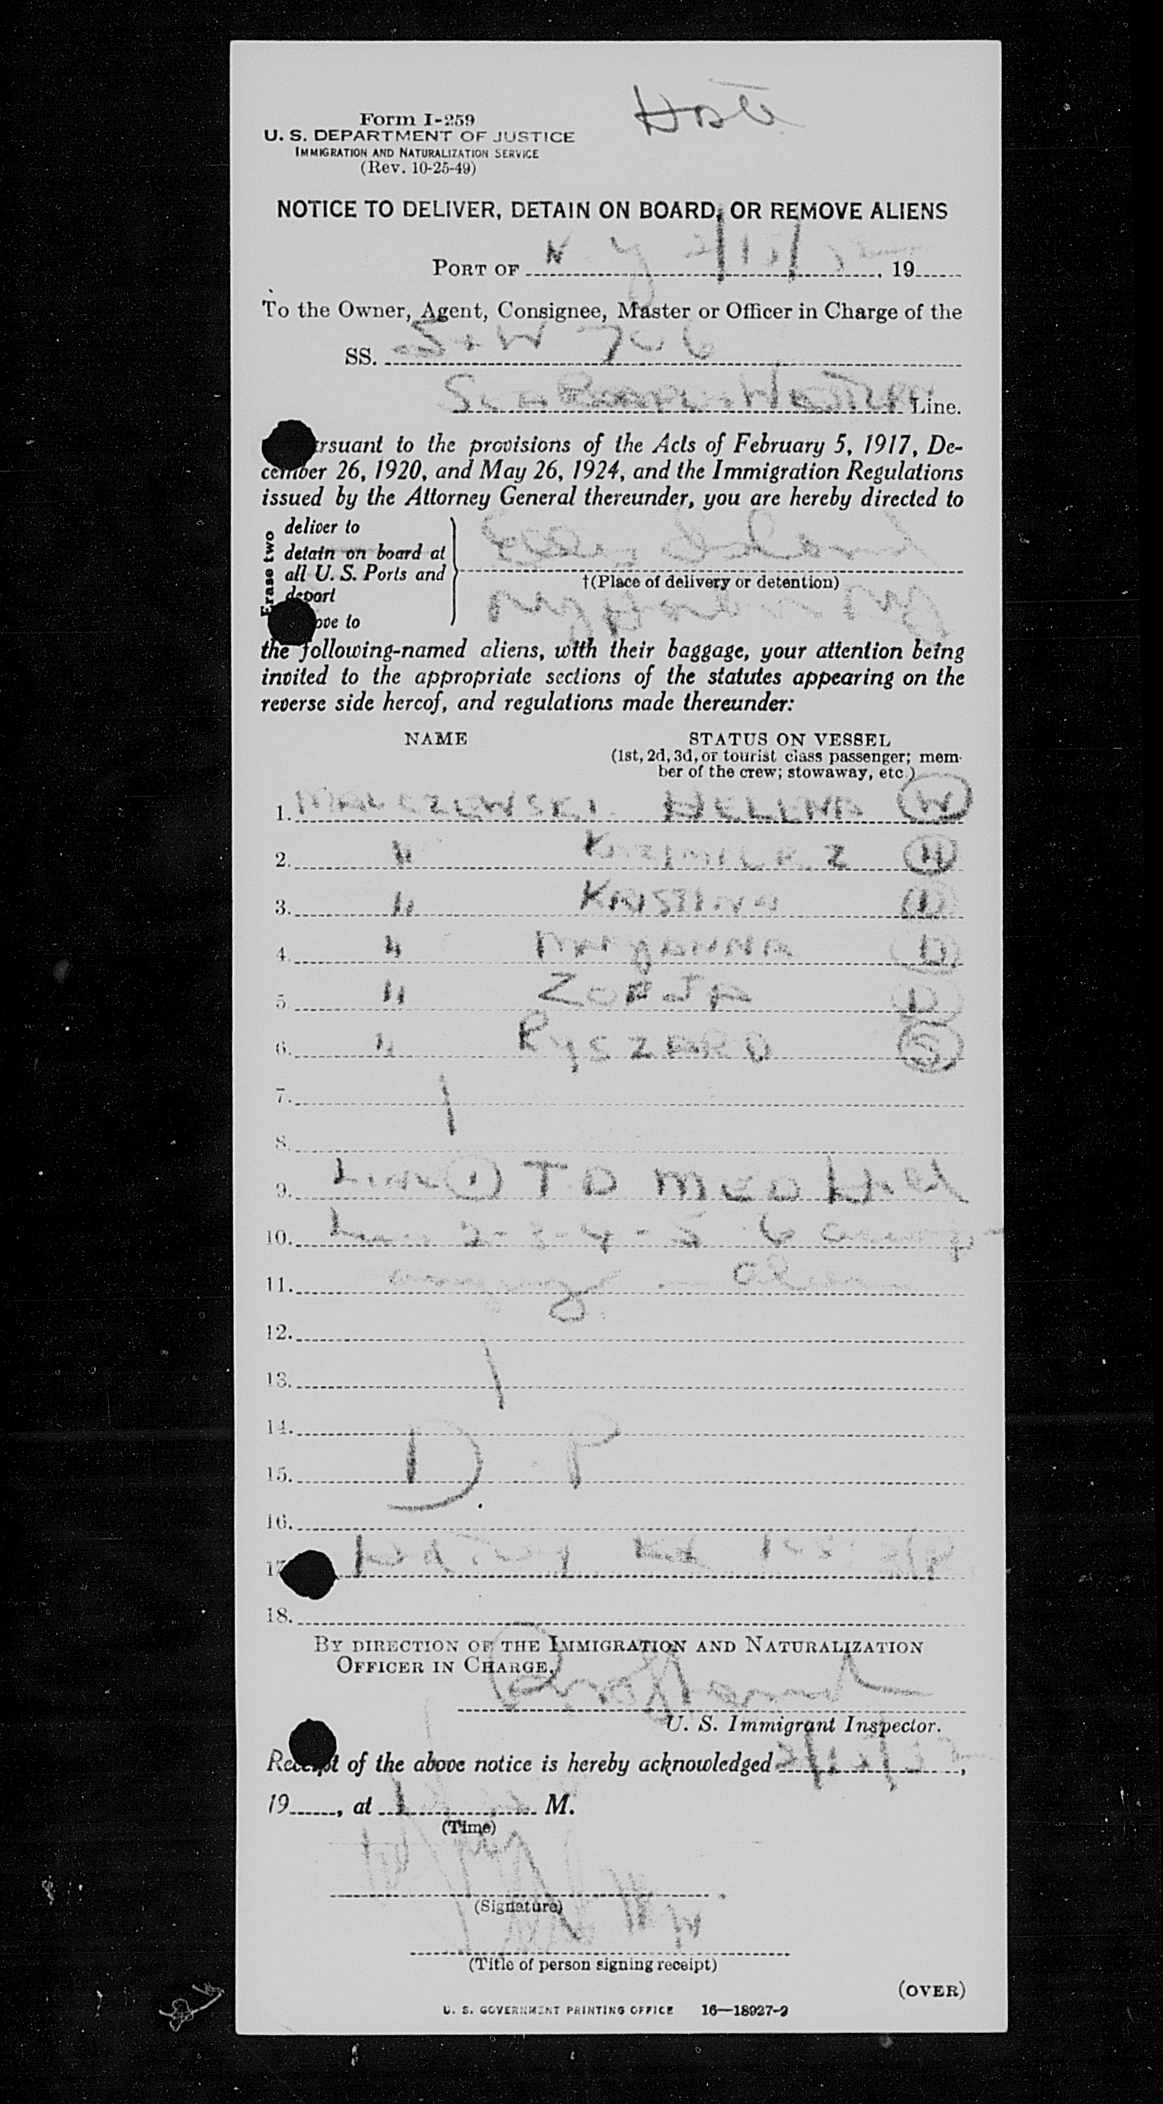 Form I-259
U. S. DEPARTMENT OF JUSTICE
IMMIGRATION AND NATURALIZATION SERVICE
(Rev. 10-25-49)
NOTICE TO DELIVER, DETAIN ON BOARD, OR REMOVE ALIENS
PORT OF N Y 2/15/52, 19
To the Owner, Agent, Consignee, Master or Officer in Charge of the
SS. S+W 706
Seaboard Western Line.
rsuant to the provisions of the Acts of February 5, 1917, De-
cember 26, 1920, and May 26, 1924, and the Immigration Regulations
issued by the Attorney General thereunder, you are hereby directed to
Erase two
deliver to
detain on board at
all U. S. Ports and
deport
ove to
Ellis Island
†(Place of delivery or detention)
NY Harbor NY
the following-named aliens, with their baggage, your attention being
invited to the appropriate sections of the statutes appearing on the
reverse side hereof, and regulations made thereunder:
NAME STATUS ON VESSEL
(1st, 2d, 3d, or tourist class passenger; mem-
ber of the crew; stowaway, etc.)
1. MALCZEWSKI HELENA W
2. " KAZIMIERZ H
3. " KRISTINA D
4. " MARYANNA D
5. " ZOFJA D
6. " RYSZARD S
7.
8.
9. Line 1 T D MED Hold
10. Line 2-3-4-5 6 accomp-
11. anying alien
12.
13.
14.
15. D P
16.
17
18.
BY DIRECTION OF THE IMMIGRATION AND NATURALIZATION
OFFICER IN CHARGE,
U. S. Immigrant Inspector.
Receipt of the above notice is hereby acknowledged 2/15/52,
19, at M.
(Time)
(Signature)
(Title of person signing receipt)
(OVER)
U. S. GOVERNMENT PRINTING OFFICE 16—18927-2